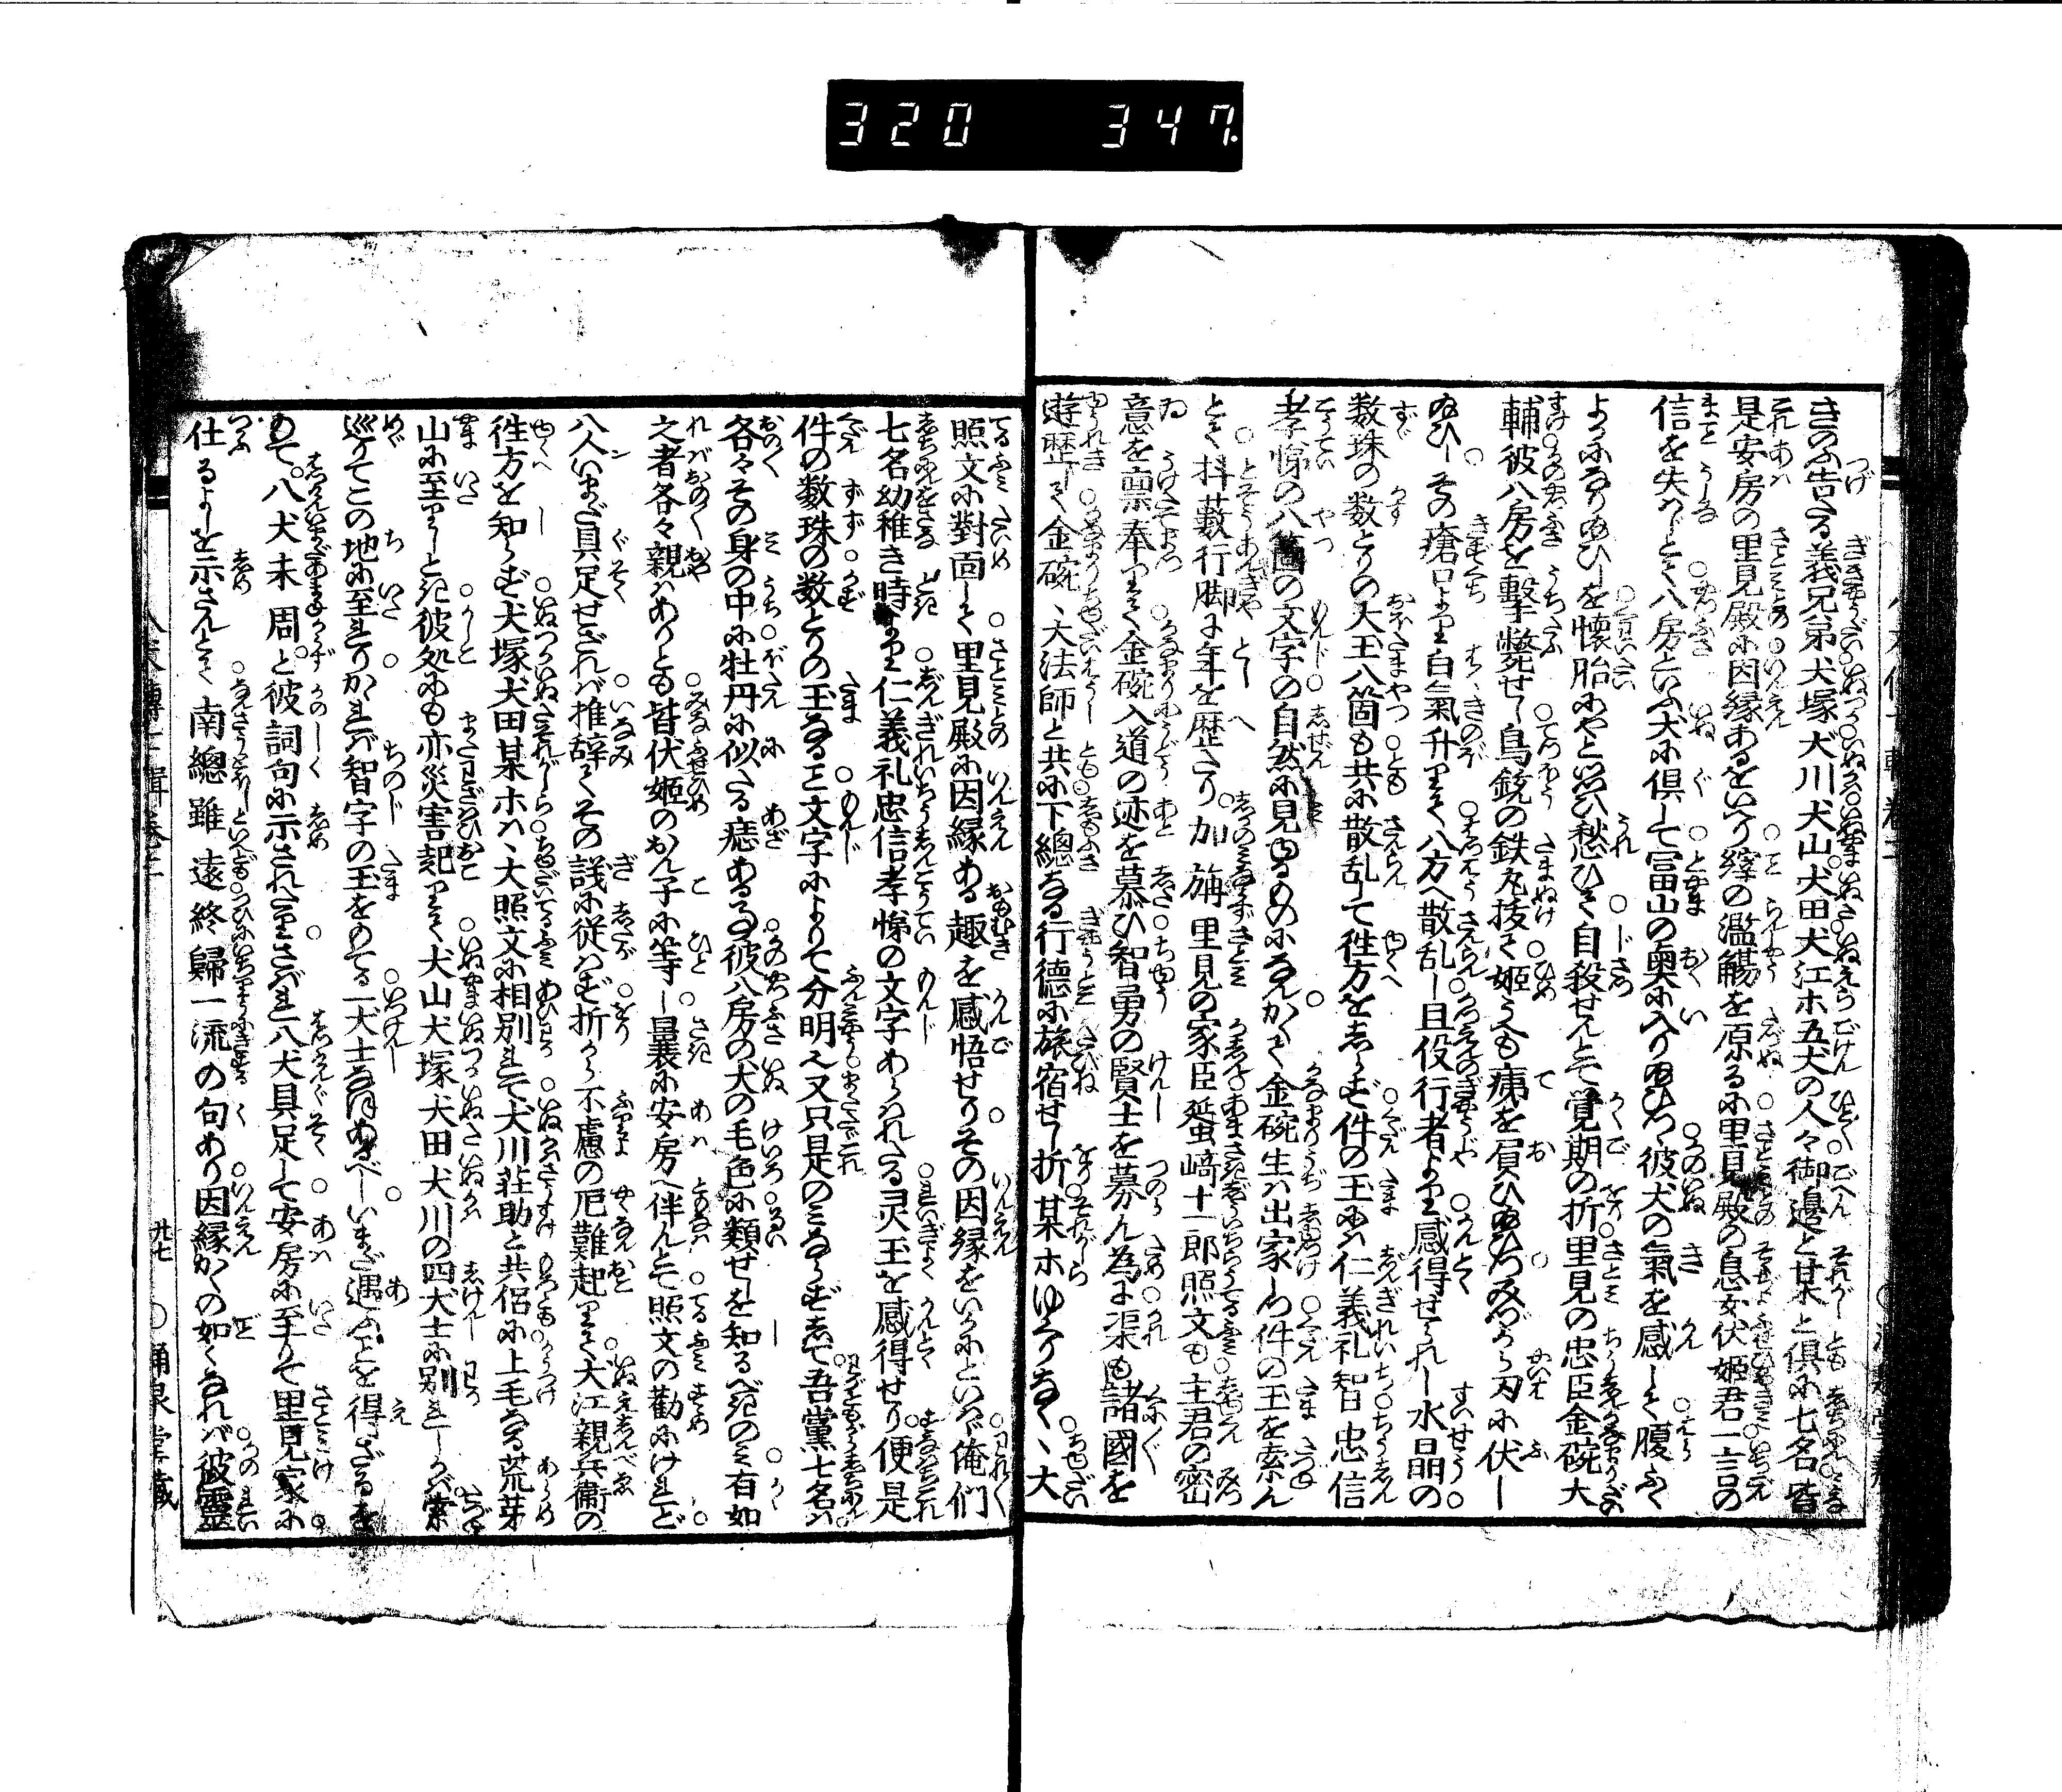 320 347
きのふ告たる義兄弟犬塚犬川犬山犬田犬江ホ五犬の人々御邊と某と倶に七名皆
是安房の里見殿に因縁あるをいり縡の濫觴を原るに里見殿の息女伏姫君一言の
信を失はじとて八房といふ犬に倶して冨山の奥に入り給ひつ彼犬の氣を感して腹ふく
よかになり給ひしを懐胎にやといひ愁ひて自殺せんとて覚期の折里見の忠臣金碗大
輔彼八房を撃斃せし鳥銃の鉄丸抜て姫うへも痍を屓ひ給ひつみづから刃に伏し
給ひしその瘡口より白氣升りて八方へ散乱し且役行者より感得せられし水晶の
数珠の数とりの大玉八箇も共に散乱して徃方をしらず件の玉には仁義礼智忠信
孝悌の八箇の文字の自然に見ゆるものになんかくて金碗生は出家しつ件の玉を索ん
とて抖藪行脚に年を歴たり加旃里見の家臣蜑﨑十一郎照文も主君の密
意を禀奉りて金碗入道の迹を慕ひ智勇の賢士を募ん為に渠も諸國を
遊歴して金碗、大法師と共に下總なる行德に旅宿せし折某ホゆくりなく、大
照文に對面して里見殿に因縁ある趣を感悟せりその因縁をいかにといへば俺們
七名幼稚き時より仁義礼忠信孝悌の文字あらはれたる灵玉を感得せり便是
件の数珠の数とりの玉なること文字によりて分明也又只是のみならずして吾黨七名は
各々その身の中に牡丹に似たる痣あるは彼八房の犬の毛色に類せしを知るべきのみ有如
之者各々親はありとも皆伏姫のおん子に等し曩に安房へ伴んとて照文の勸めけれど
八人いまだ具足せざれば推辞てその議に従はず折から不慮の厄難起りて犬江親兵衞の
徃方を知らず犬塚犬田某ホは、大照文に相別れて犬川荘助と共侶に上毛なる荒芽
山に至りしとき彼処にも亦災害起りて犬山犬塚犬田犬川の四犬士に別れしかば索
巡りてこの地に至れりかゝれば智字の玉をもてる一犬士なほあるべしいまだ遇ふことを得ざるを
もて八犬未周と彼詞句に示されたりさばれ八犬具足して安房に至りて里見家に
仕るよしを示さんとて南總雖遠終歸一流の句あり因縁かくの如くなれば彼靈
八犬傳七輯卷二
廿七
涌泉堂藏